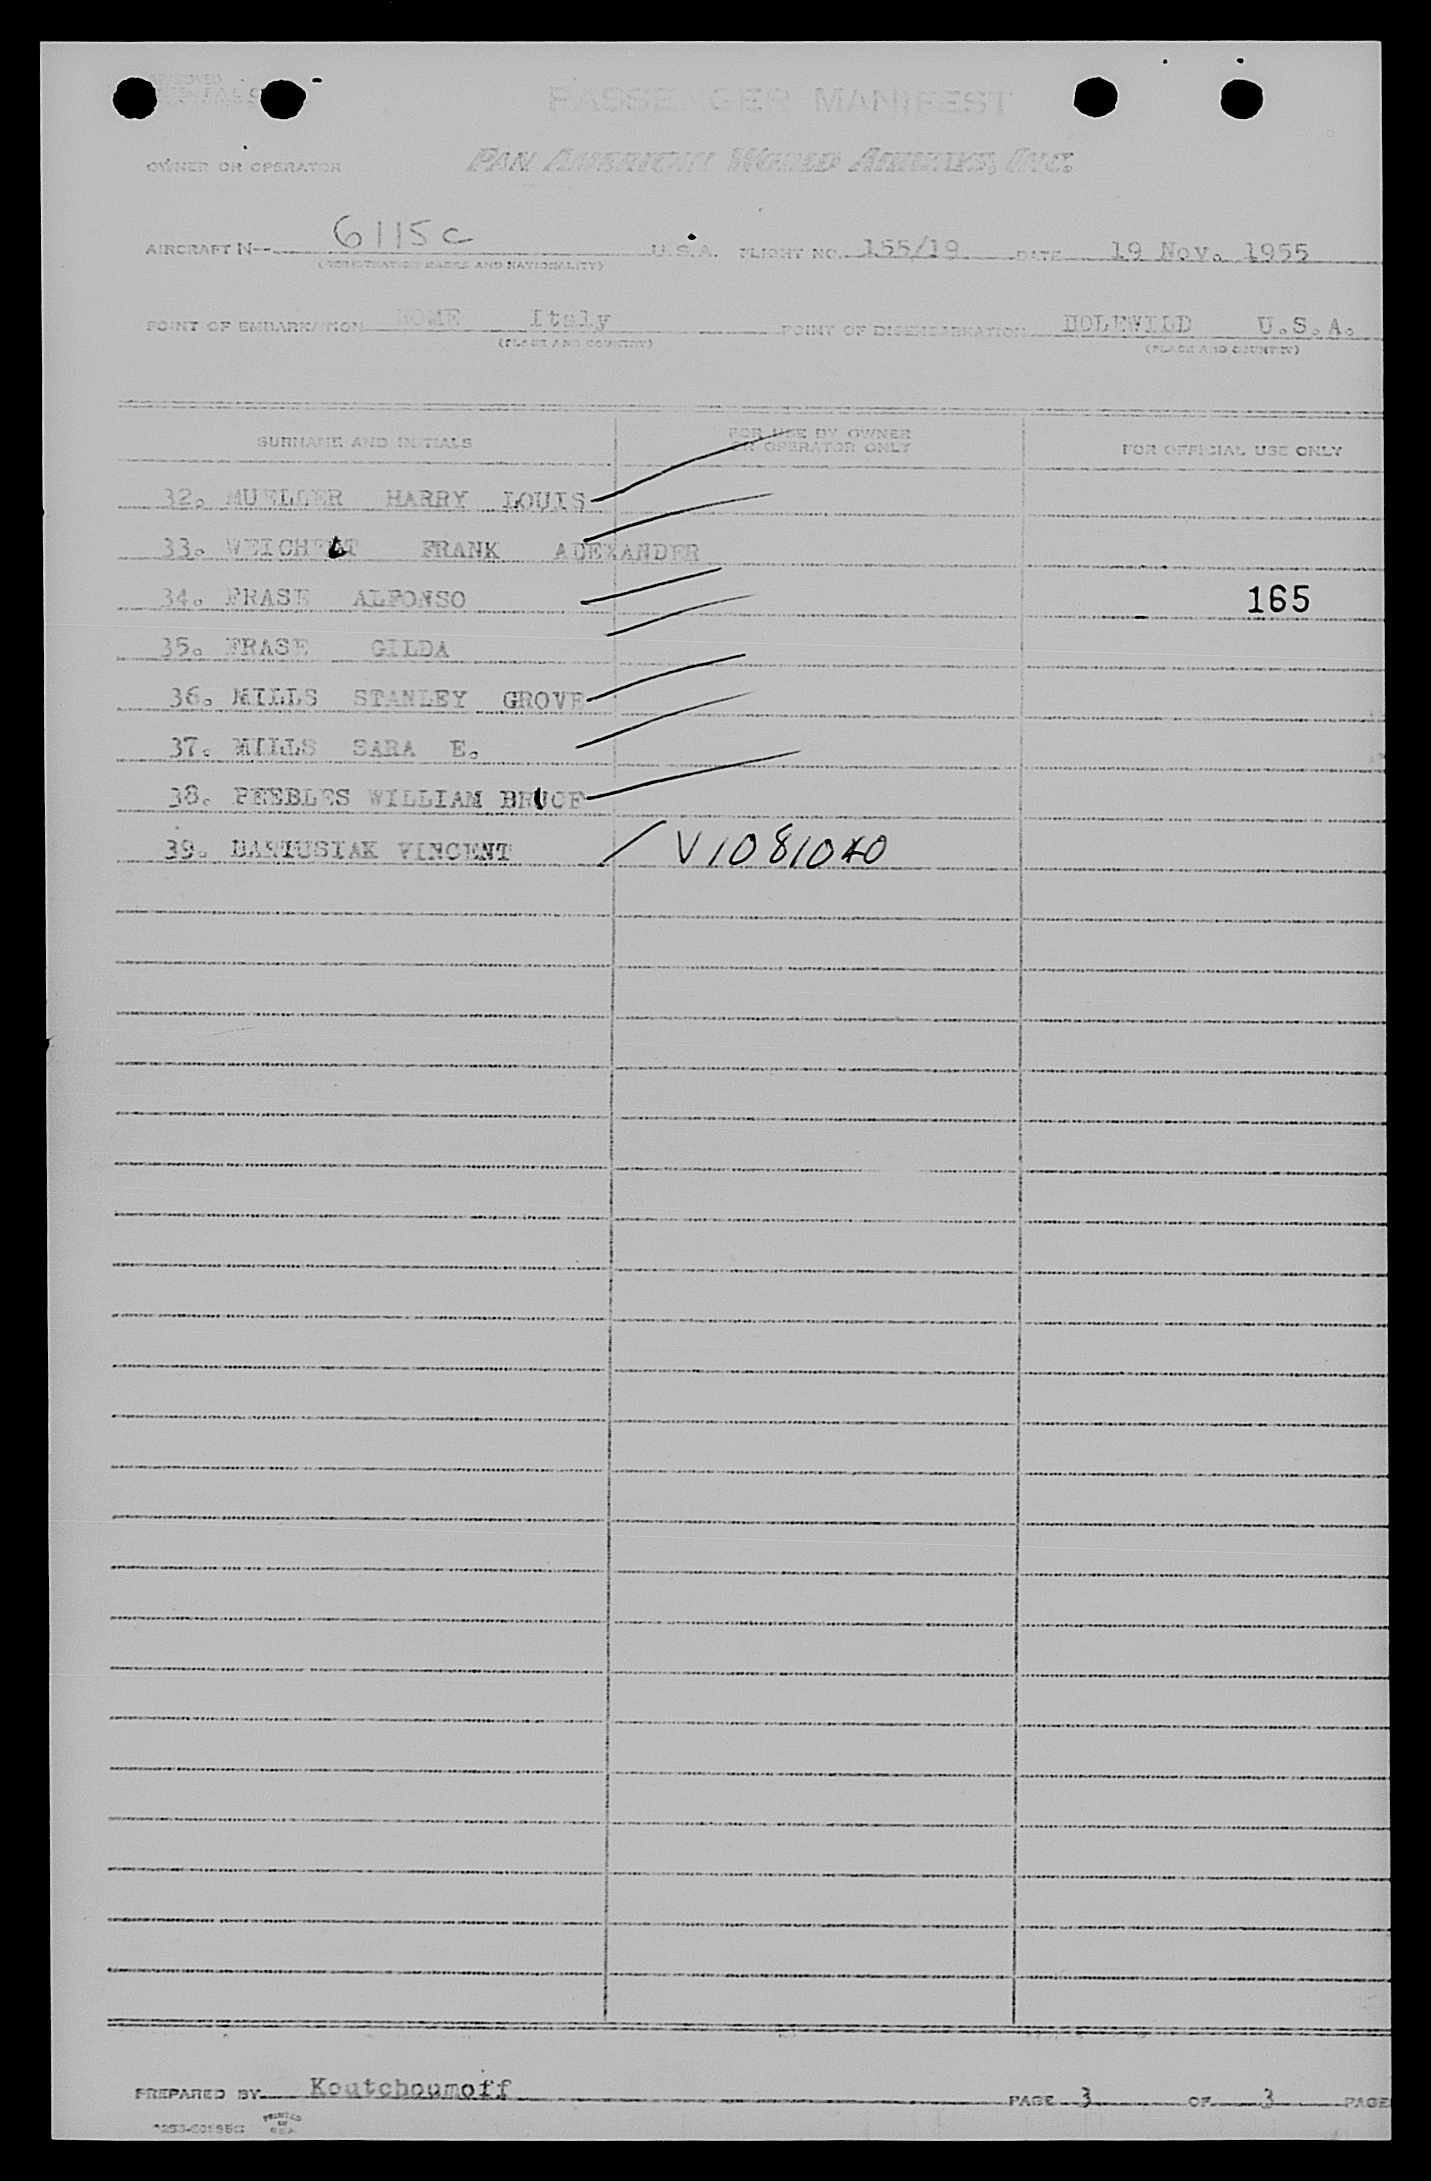 APPROVED
PASSENGER MANIFEST
OWNER OR OPERATOR PAN AMERICAN WORLD AIRWAYS, INC.
AIRCRAFT N-- 6115C U.S.A. FLIGHT NO. 155/19 DATE 19 Nov. 1955
(REGISTRATION MARKS AND NATIONALITY)
POINT OF EMBARKATION ROME Italy POINT OF DISEMBARKATION U.S.A.
(PLACE AND COUNTRY) (PLACE AND COUNTRY)
SURNAME AND INITIALS FOR USE BY OWNER OR OPERATOR ONLY FOR OFFICIAL USE ONLY
32. MUELLER HARRY LOUIS
33. FRANK ALEXANDER
34. FRASE ALFONSO 165
35. FRASE GILDA
36. MILLS STANLEY GROVE
37. MILLS SARA E.
38. PEEBLES WILLIAM BRUCE
39. VINCENT V1081040
PREPARED BY Koutchoumoff PAGE 3 OF 3 PAGE
PRINTED
IN
U.S.A.